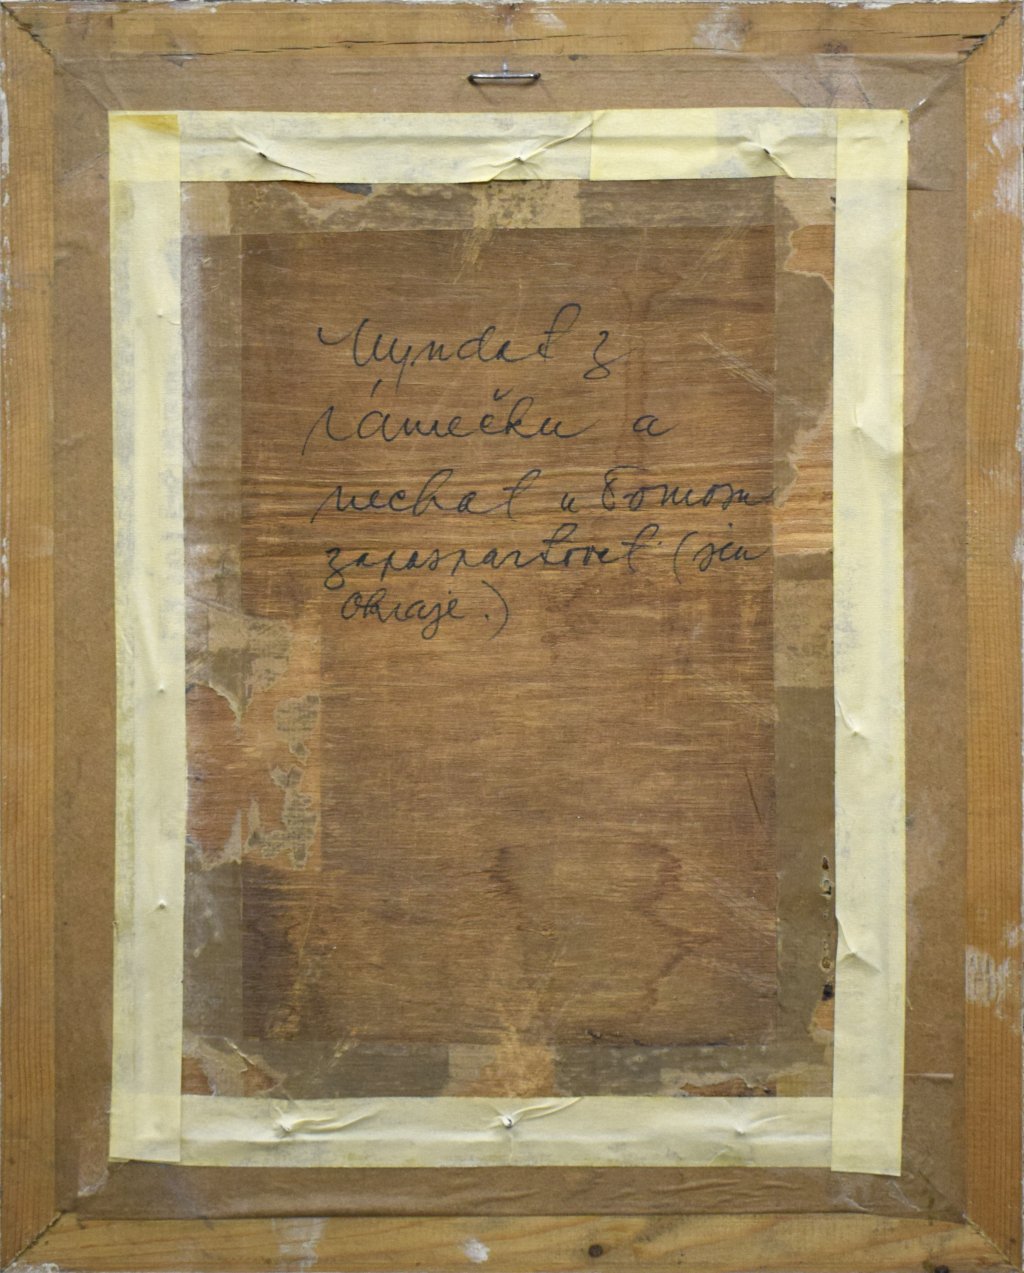 Vyndat z
rámečku a
nechat u Tomom
zapaspartovat (jen
okraje.)